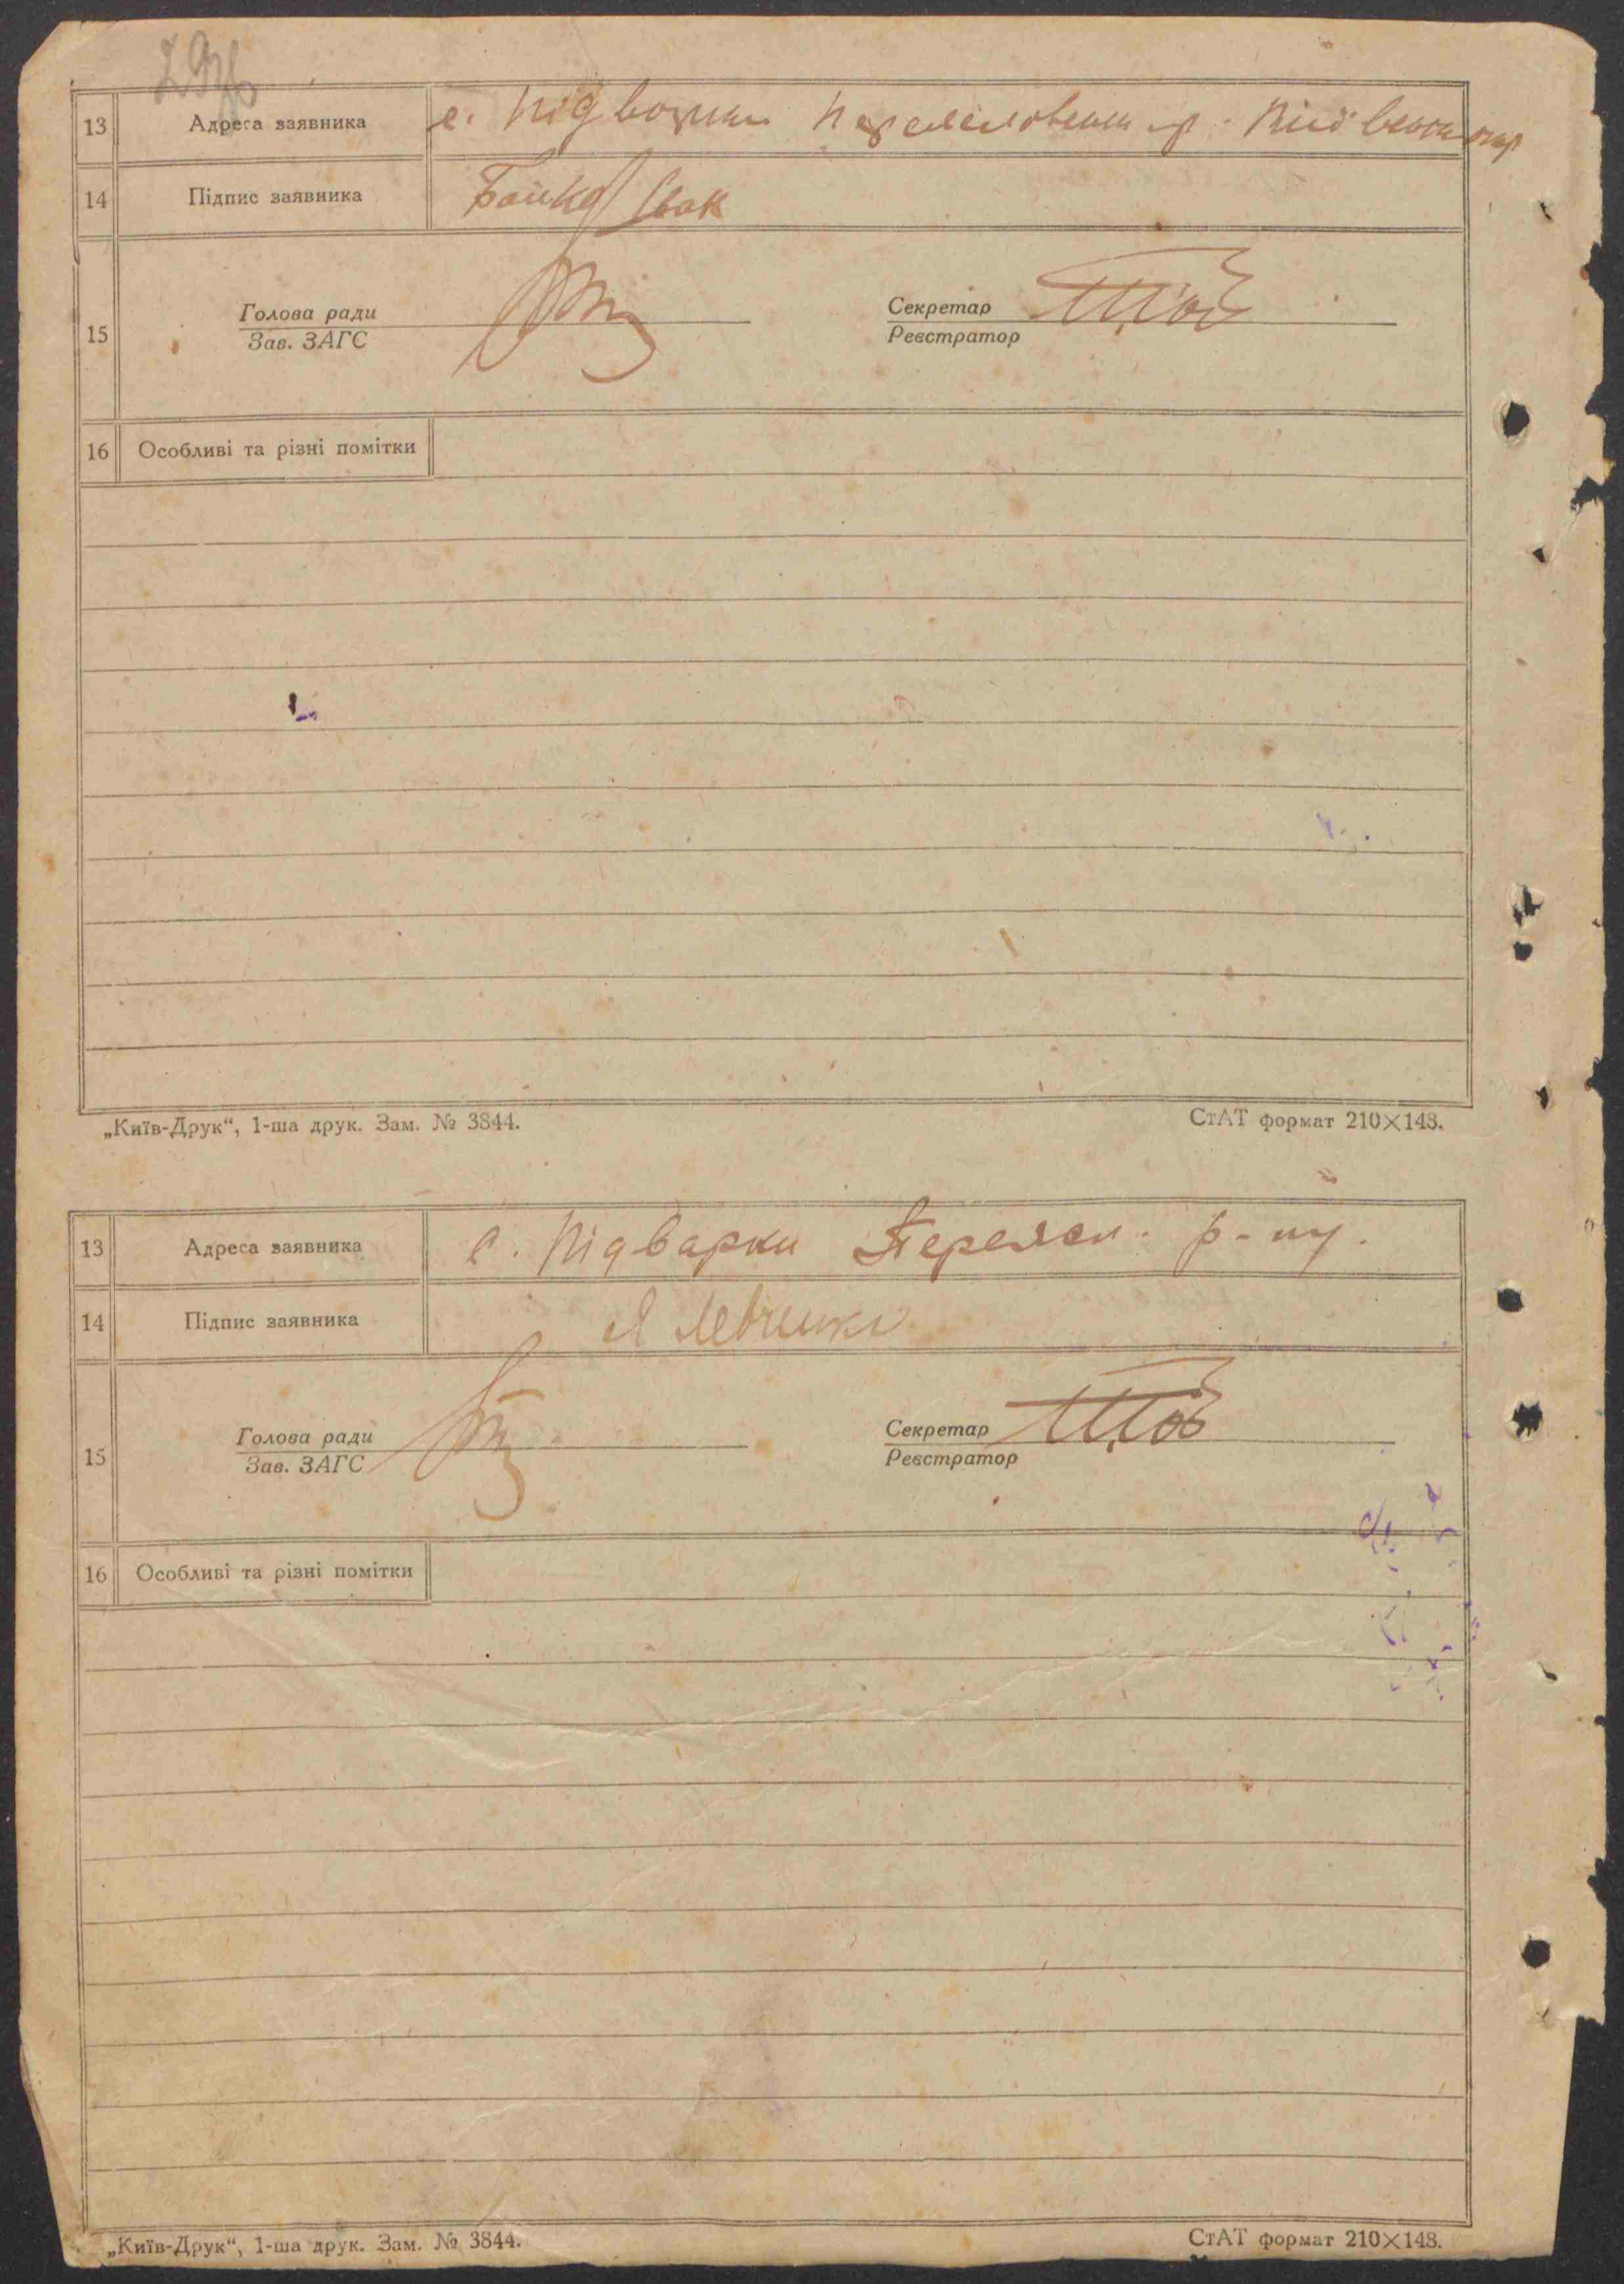 13 Адреса заявника с. Підварки
14 Підпис заявника Бойко Івак
Голова ради Секретар
15 Зав. ЗАГС Реєстратор
16 Особливі та різні помітки
„Київ-Друк“, 1-ша друк. Зам. № 3844. СтАТ формат 210×148.
13 Адреса заявника с. Підварки Переясл. р-ну.
14 Підпис заявника Левченко
Голова ради Секретар
15 Зав. ЗАГС Реєстратор
16 Особливі та різні помітки
„Київ-Друк“, 1-ша друк. Зам. № 3844. СтАТ формат 210×148.